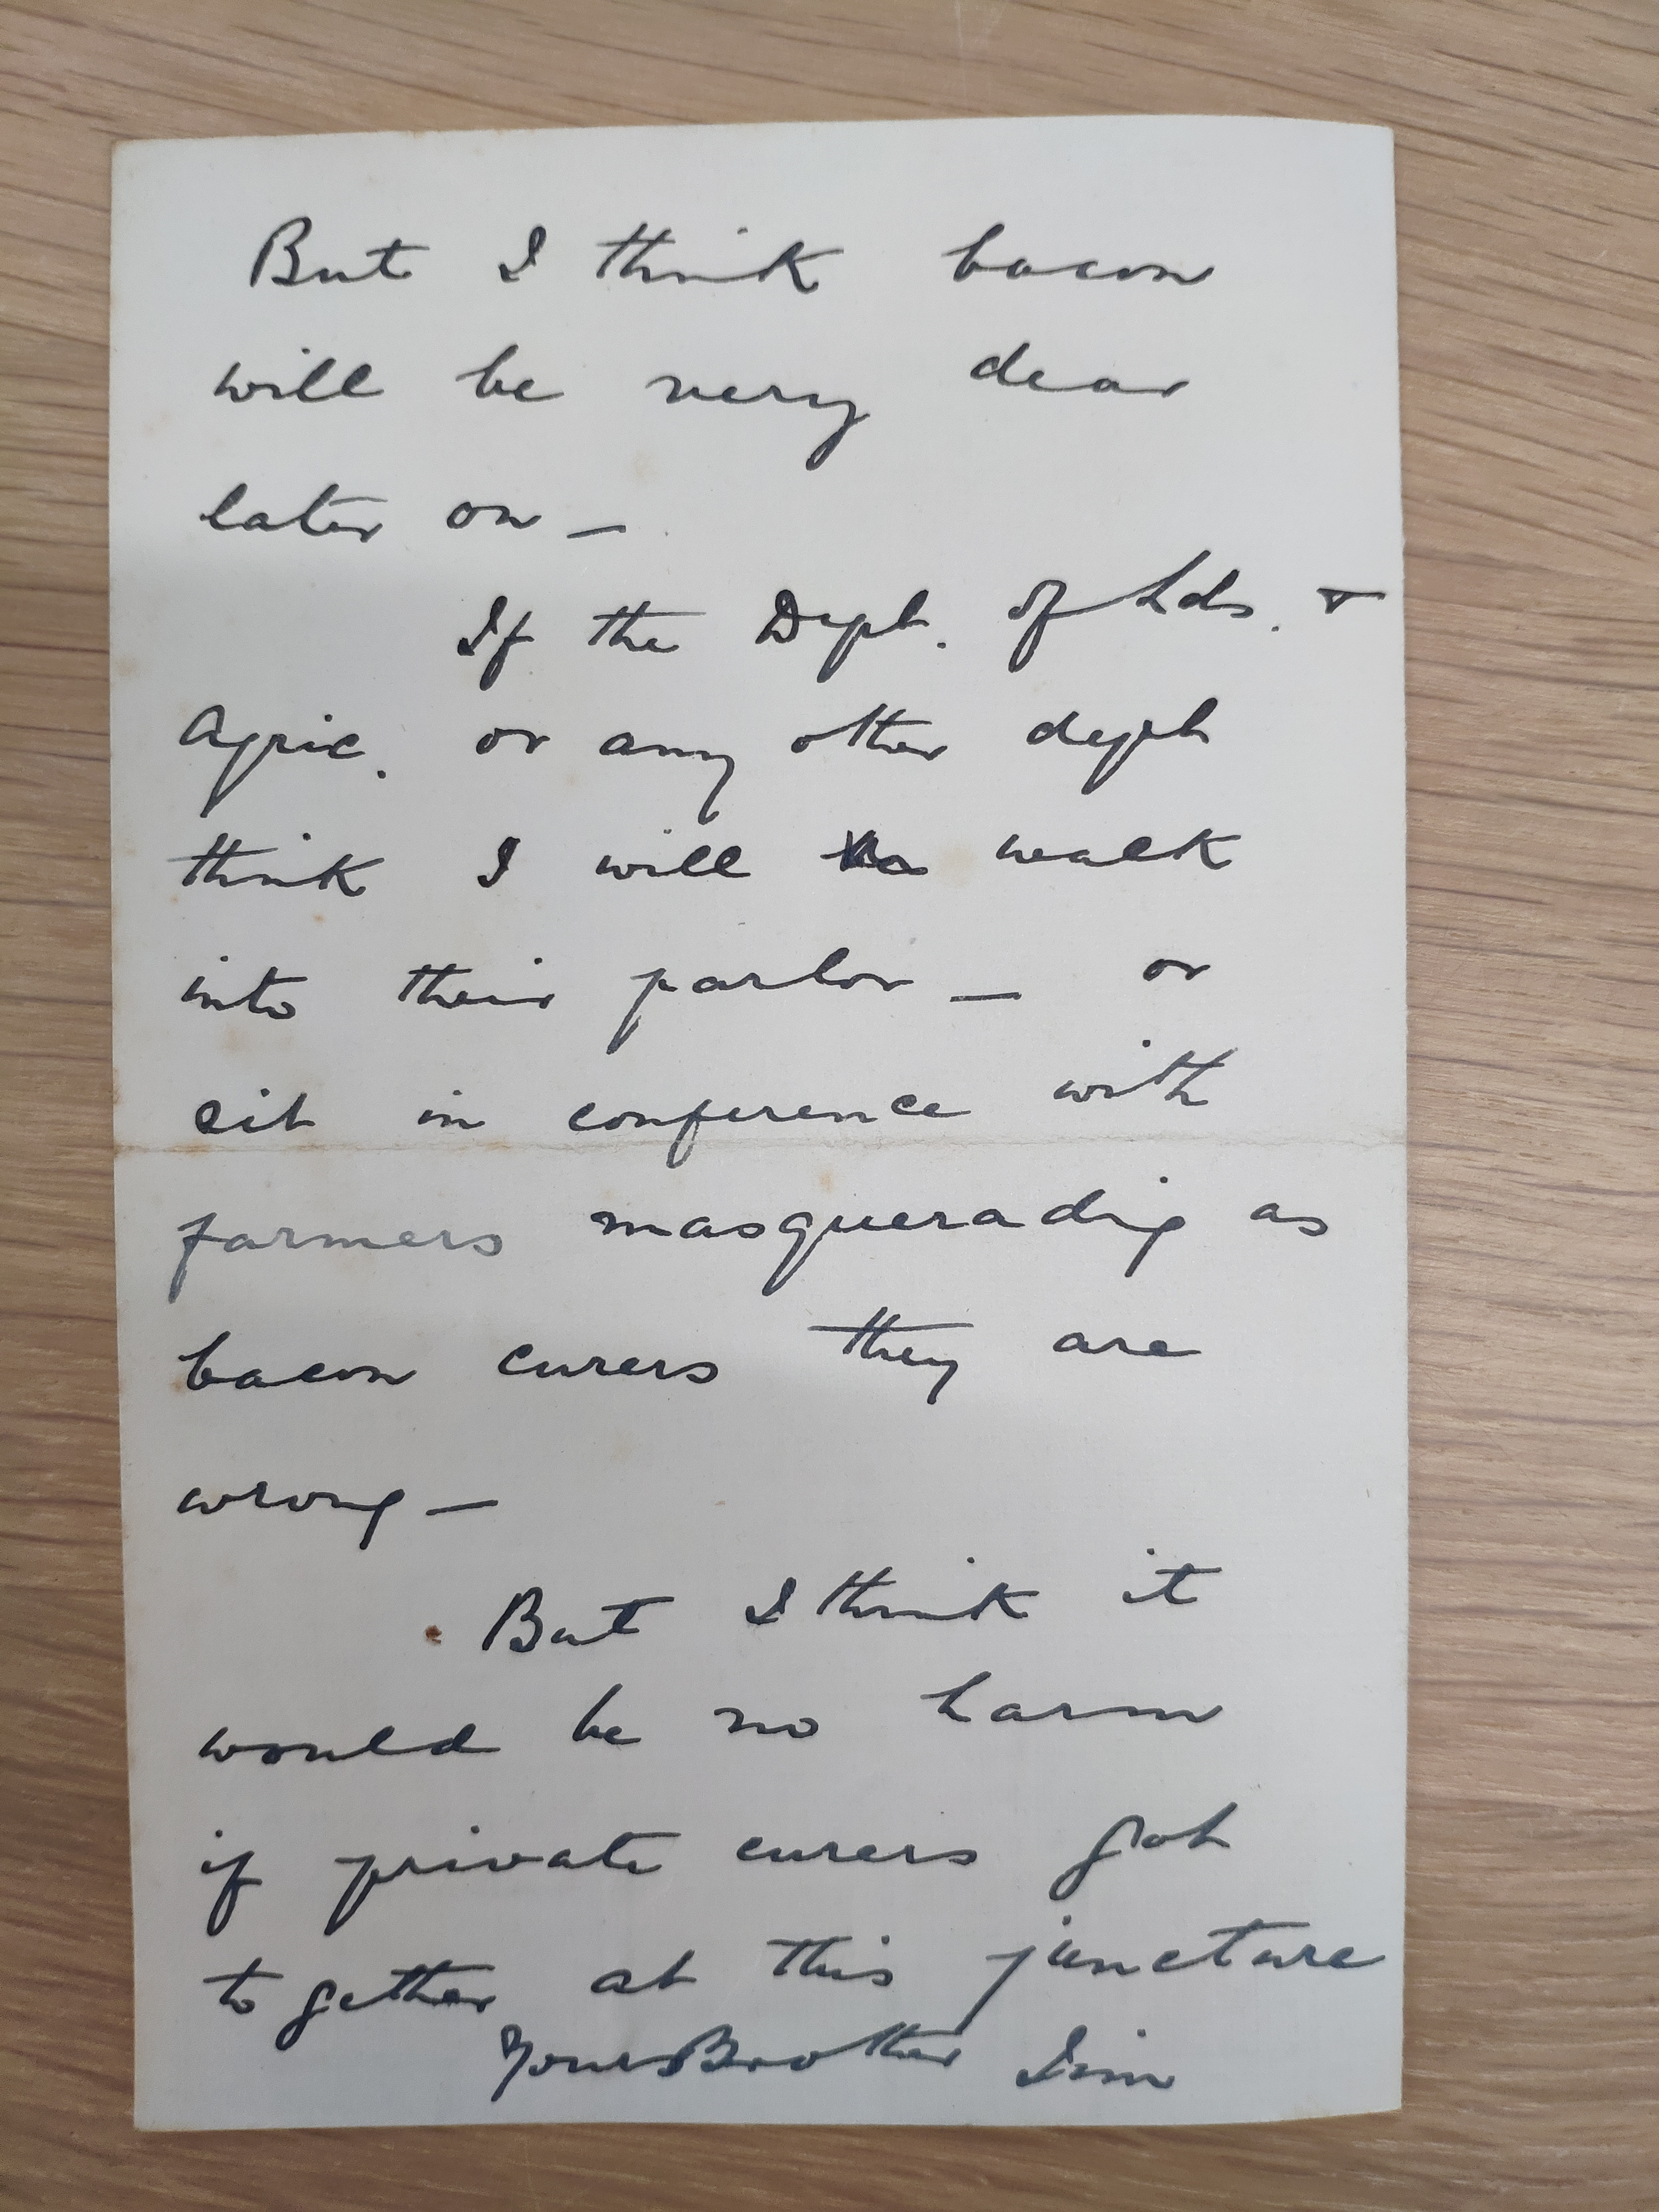 But I think bacon
will be very dear
later on –
If the Dept. of Lds. &
Agric. or any other dept
think I will walk
into their parlor – or
sit in conference with
farmers masqueradig as
bacon curers they are
wrong –
But I think it
would be no harm
if private curers got
together at this juncture
Your Brother Jim